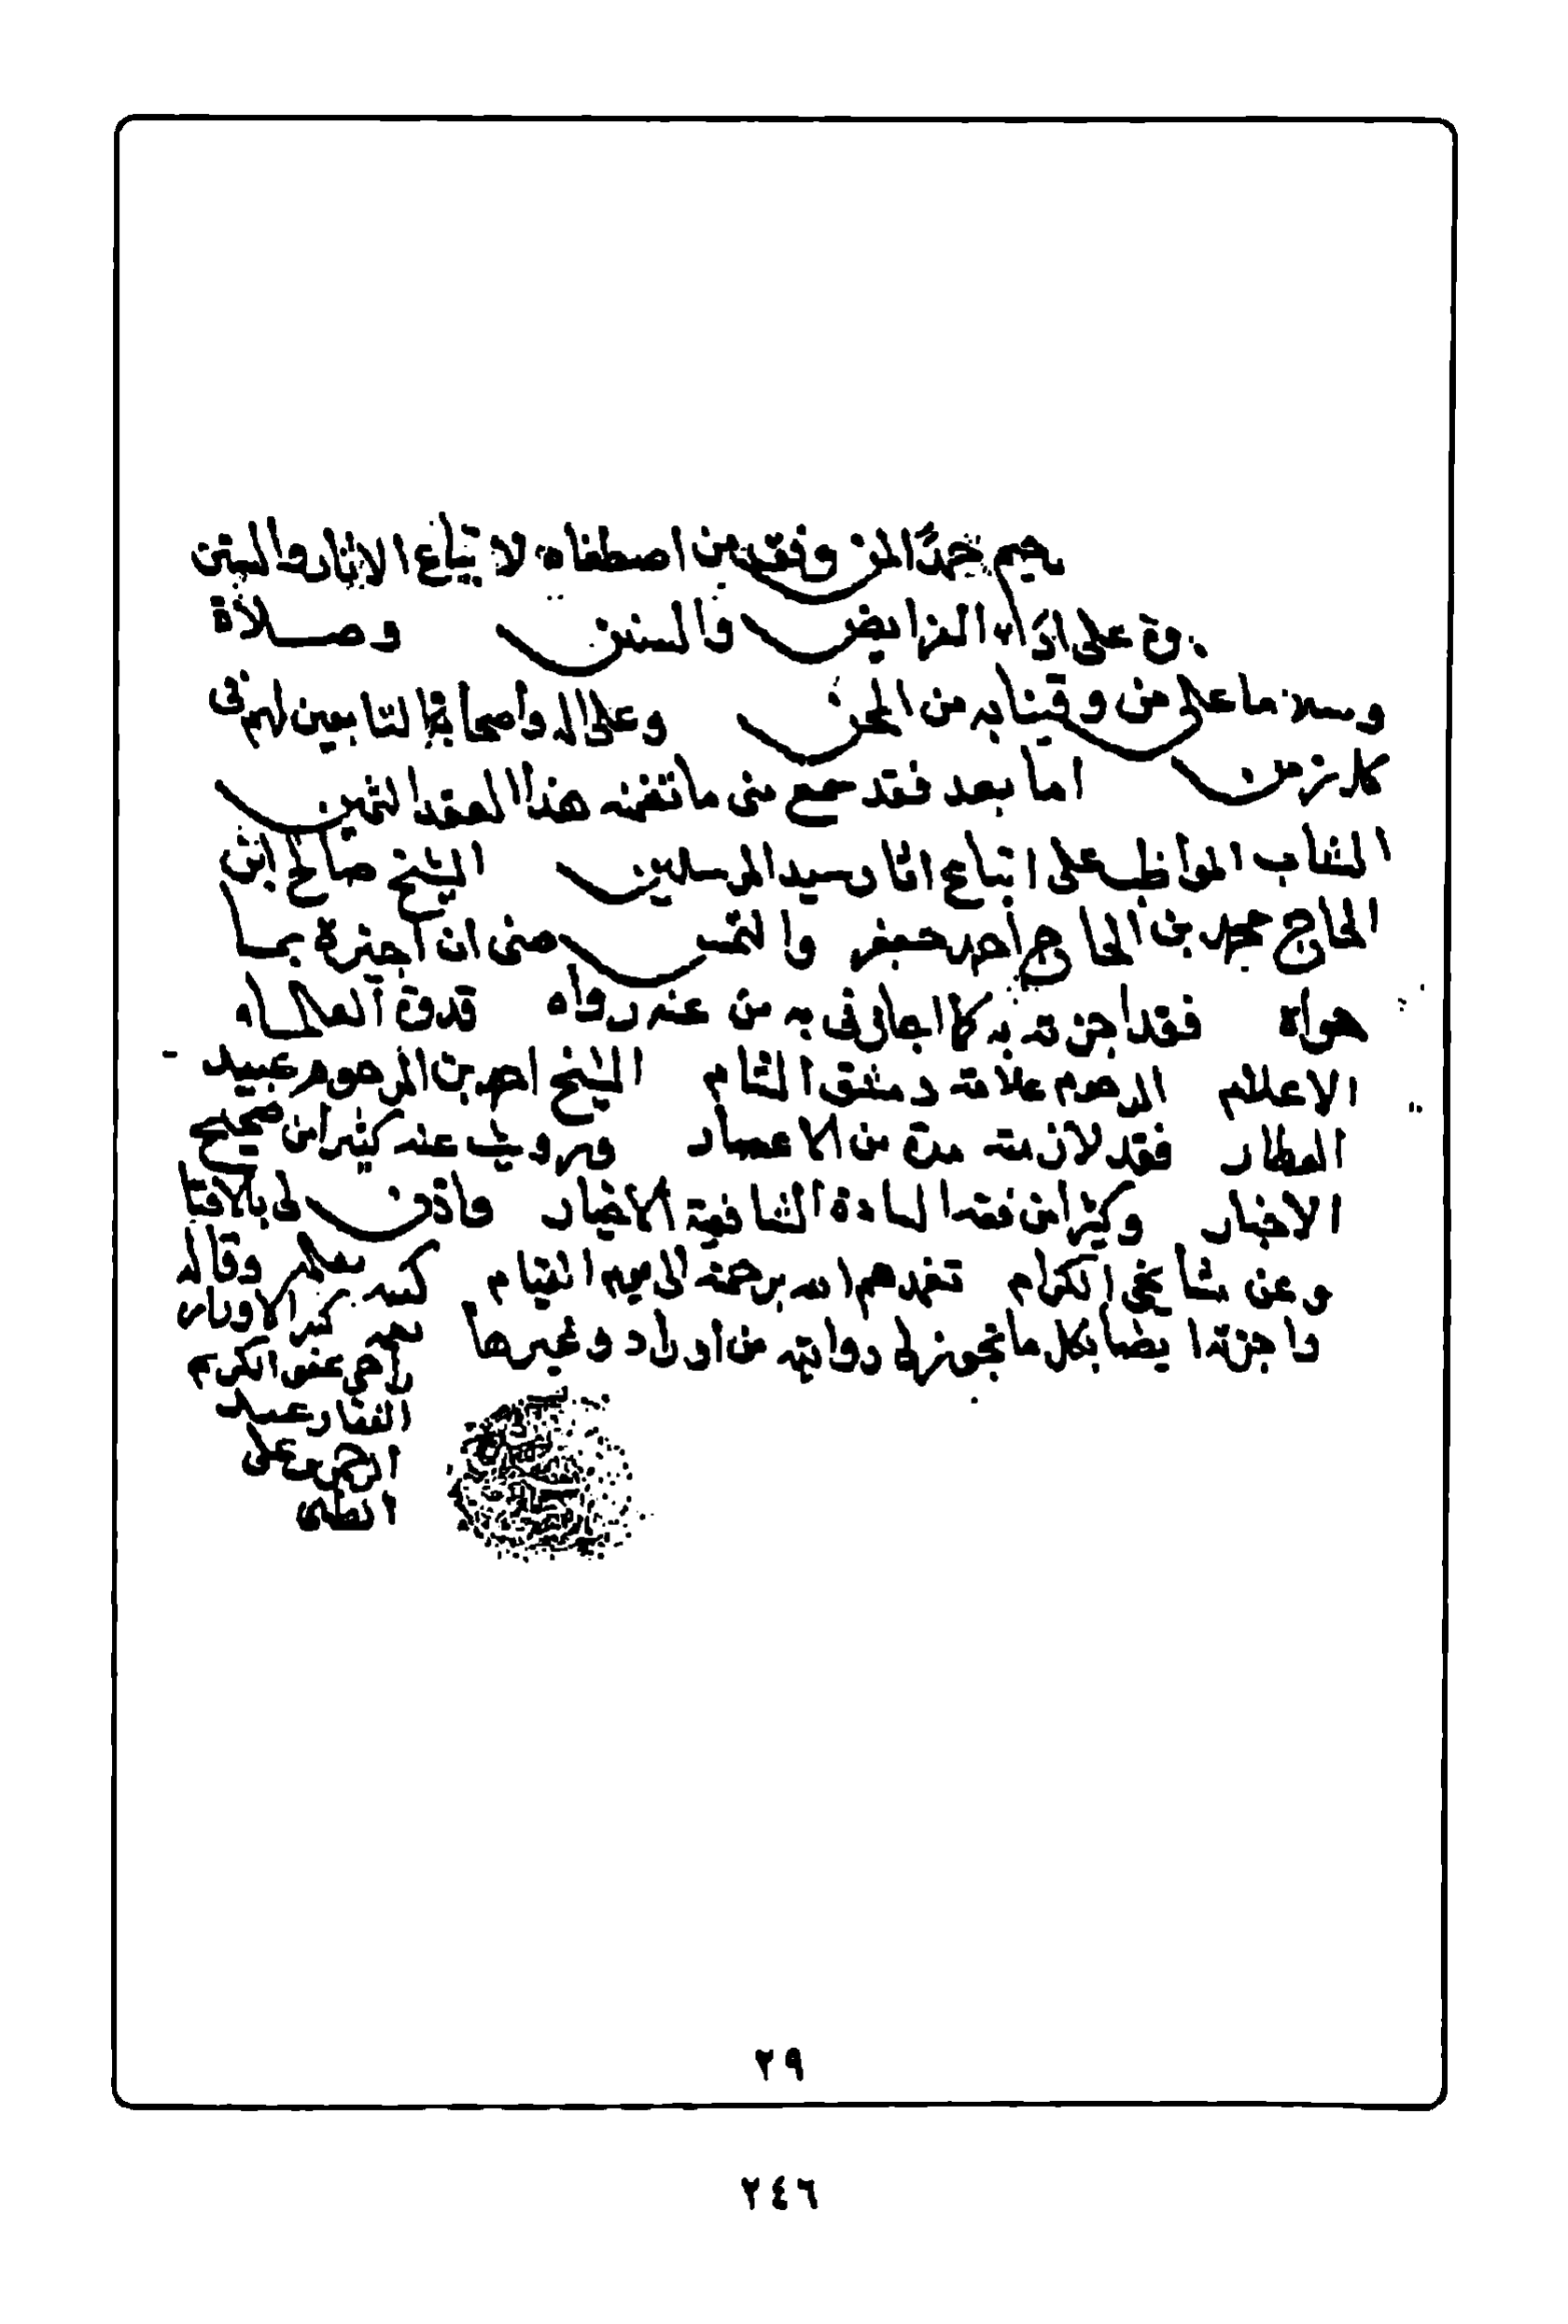 حمدًا لمن وفق من اصطفاه لاتباع الاثار والسنن
على اداء الفرايض والسنن وصلاة
وسلاما على من وقينا به من المحن وعلى اله واصحابه التابعين لهم في
كل زمن اما بعد فقد سمع مني ما تضمنه هذا العقد الثمين
الشاب المواظب على اتباع اثار سيد المرسلين الشيخ صالح ابن
الحاج محمد بن الحاج احمد جعفر والتمس مني ان اجيزه بما
حواه فقد اجزته به كما اجازني به من عنه رواه قدوة العلماء
الاعلام المرحوم علامة دمشق الشام الشيخ احمد بن المرحوم عبيد
العطار فقد لازمته مدة من الاعصار ورويت عنه كثيرا من صحيح
الاخبار وكثيرا من فقه السادة الشافعية الاخيار واذن لي بالافتا
وعن مشايخي الكرام تغمدهم الله برحمته الى يوم القيام
واجزته ايضا بكل ما تجوز لي روايته من اوراد وغيرها
كتبه بقلمه وقاله
بفمه كثير الاوزار
راجي عفو الكريم
الغفار عبد
الرحمن بن علي
الطيبي
٢٩
٢٤٦